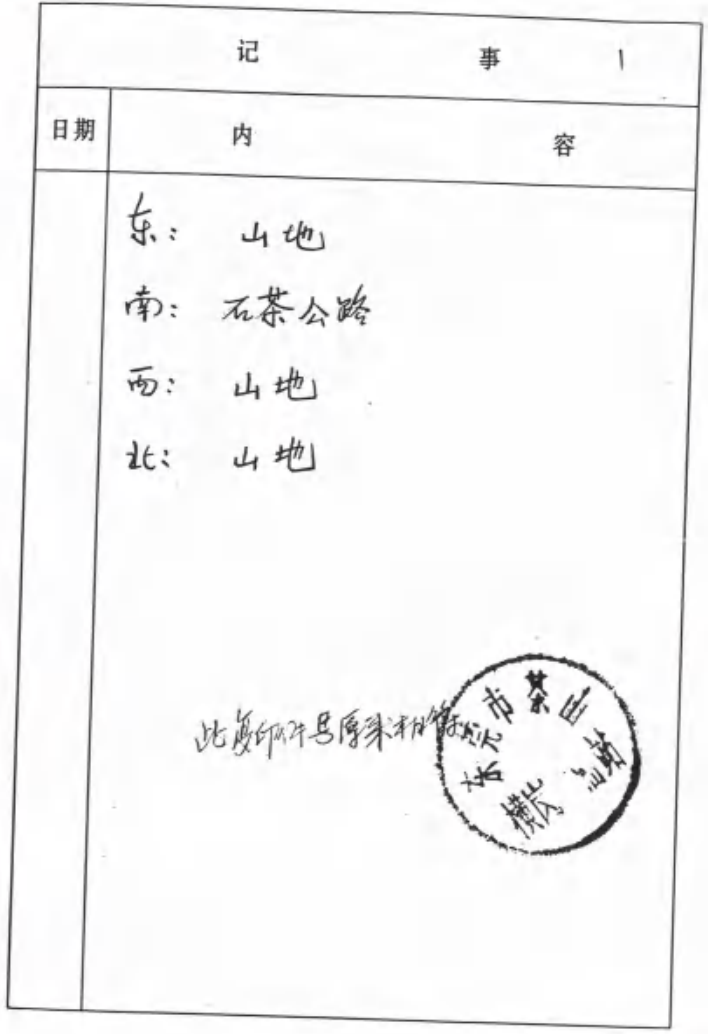 记 事 1
日期 内 容
东： 山地
南： 石茶公路
西： 山地
北： 山地
此复印件与原来相符
东莞市茶山
横岗